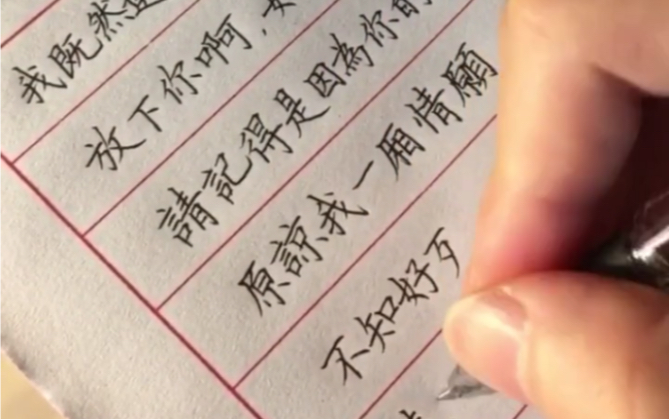 我既然
放下你啊，
請記得是因為你
原諒我一厢情願
不知好歹